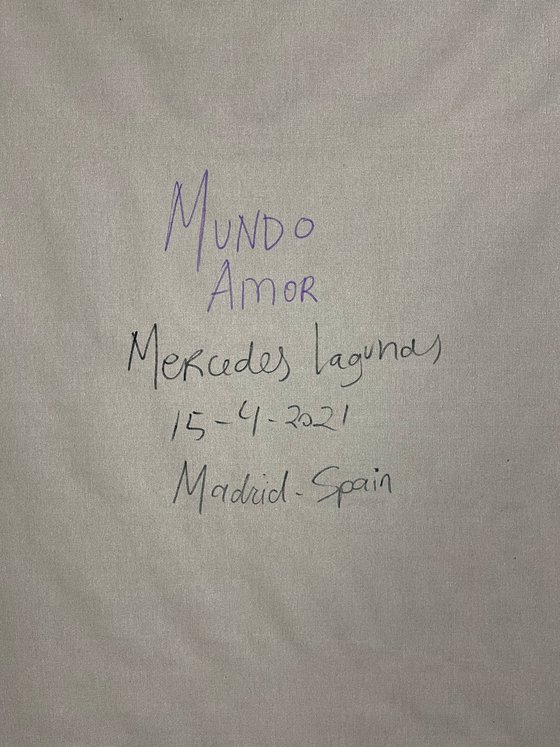 MUNDO
AMOR
Mercedes Lagunas
15-4-2021
Madrid-Spain